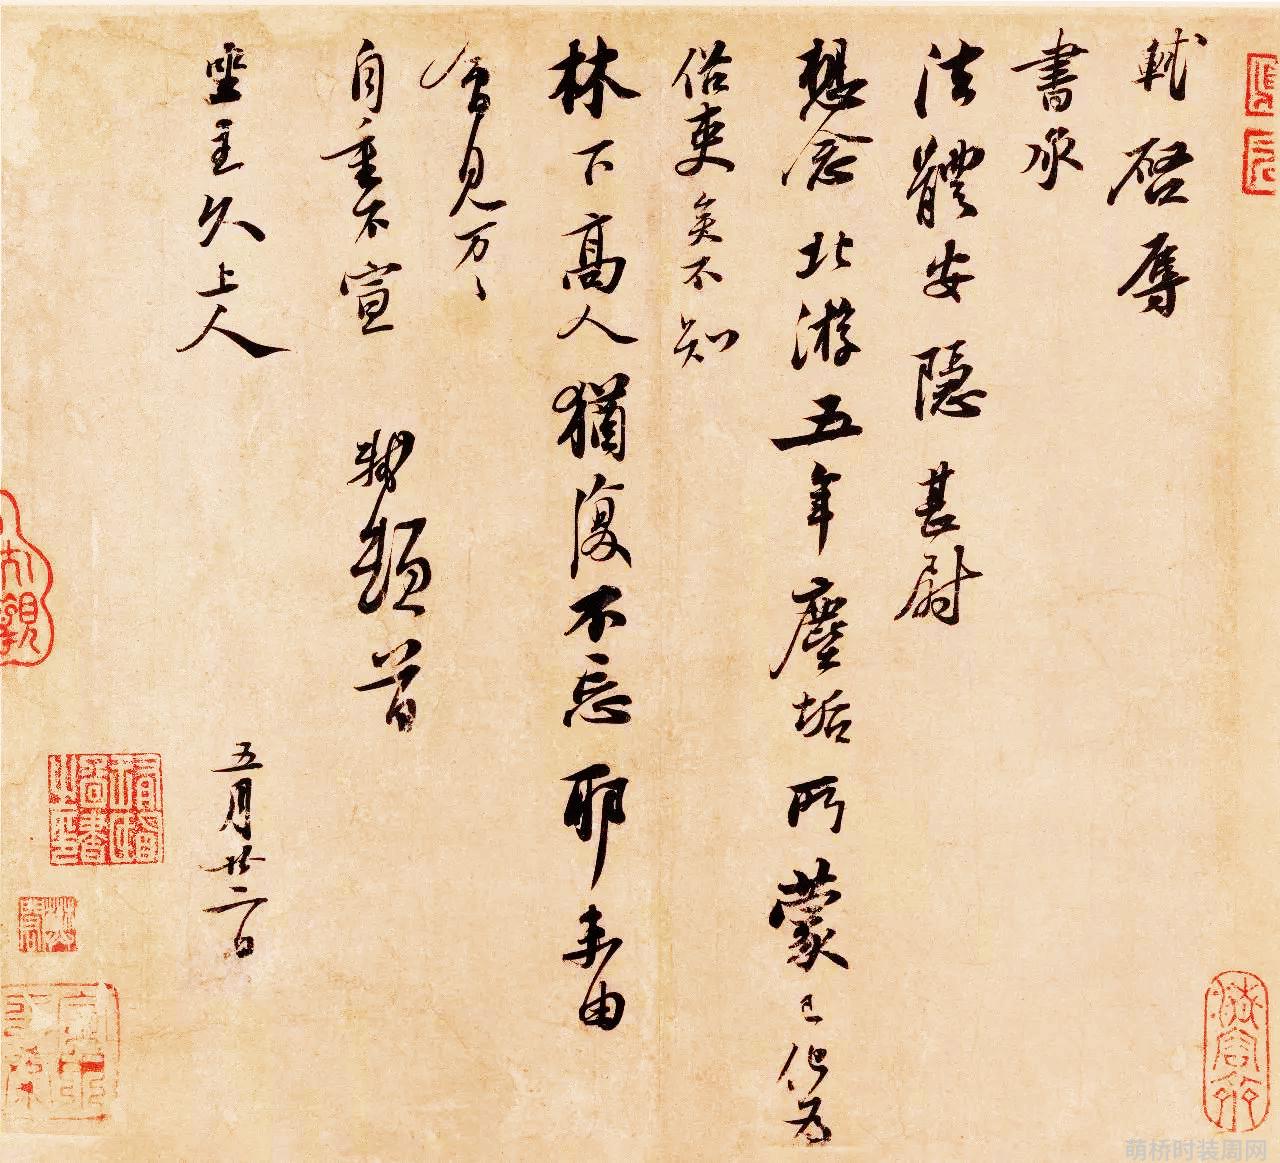 軾啓辱
書承
法體安隱甚慰
想念北游五年塵垢所蒙已化為
俗吏矣不知
林下高人猶復不忘耶未由
會見万万
自重不宣 軾頓首
坐主久上人 五月廿二日
萌桥时装周网